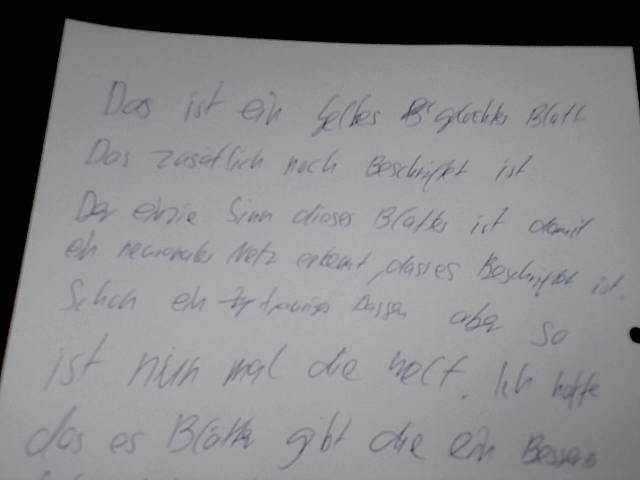 Das ist ein gelbes Blatt
Das zusätlich noch Beschriftet ist
Der einzie Sinn dieses Blattes ist damit
ein neuronales Netz erkennt, dass es Beschriftet ist.
Schon ein trauriges Dassen aber so
ist nun mal die Welt. Ich hoffe
das es Blätter gibt die ein Besseres